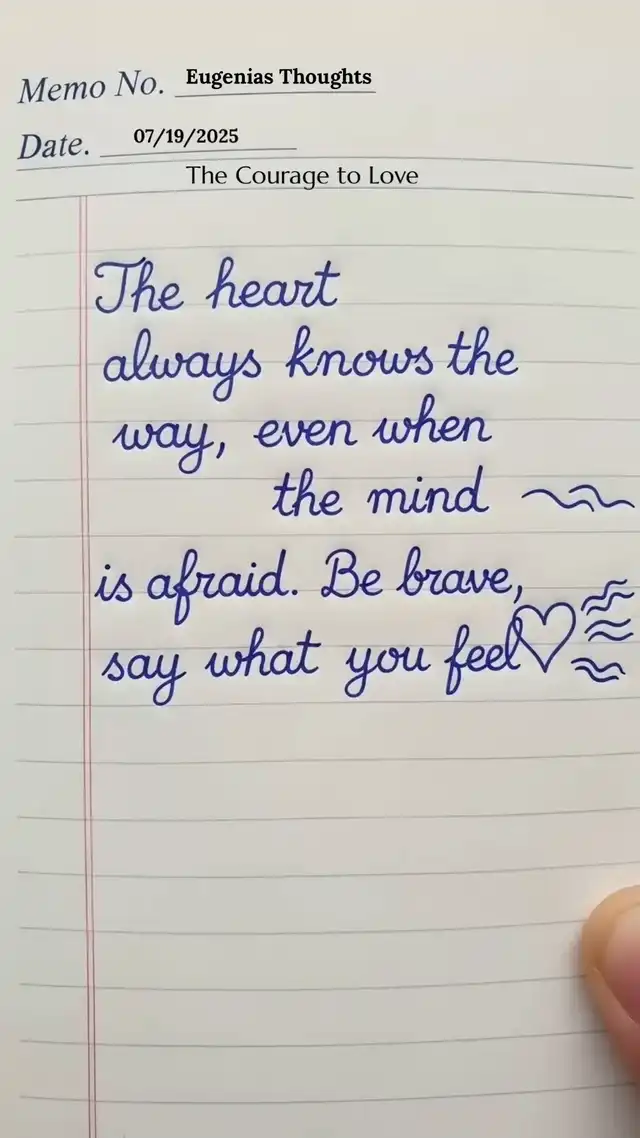 Memo No. Eugenias Thoughts
Date. 07/19/2025
The Courage to Love
The heart
always knows the
way, even when
the mind
is afraid. Be brave,
say what you feel